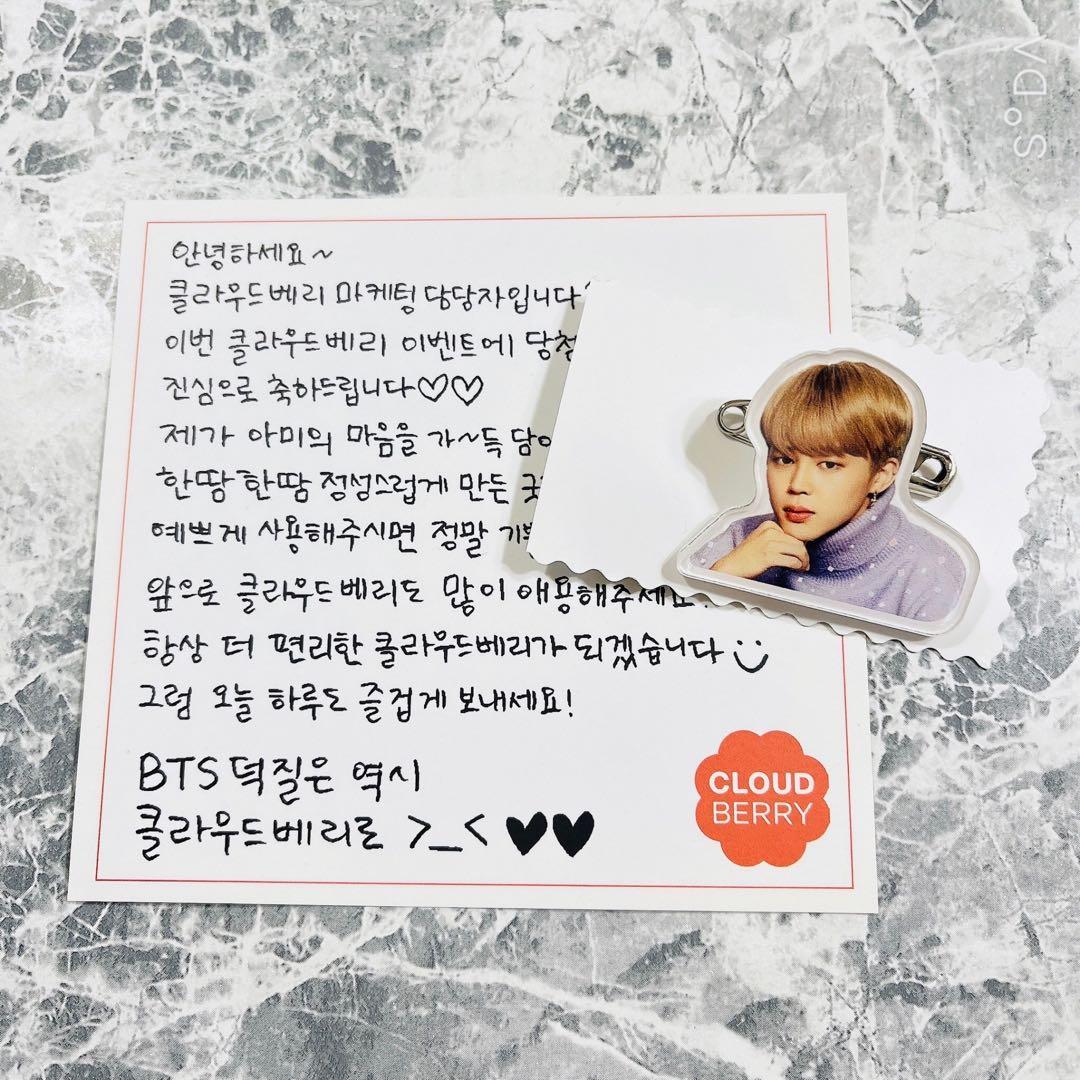 안녕하세요~
클라우드베리 마케팅 담당자입니다
이번 클라우드베리 이벤트에
진심으로 축하드립니다♡♡
제가 아미의 마음을 가~득
한땀 한땀 정성스럽게 만든
예쁘게 사용해주시면 정말
앞으로 클라우드베리도 많이 애용해주세요
항상 더 편리한 클라우드베리가 되겠습니다
그럼 오늘 하루도 즐겁게 보내세요!
BTS 덕질은 역시
클라우드베리로 >_< ♥♥
CLOUD
BERRY
SODA